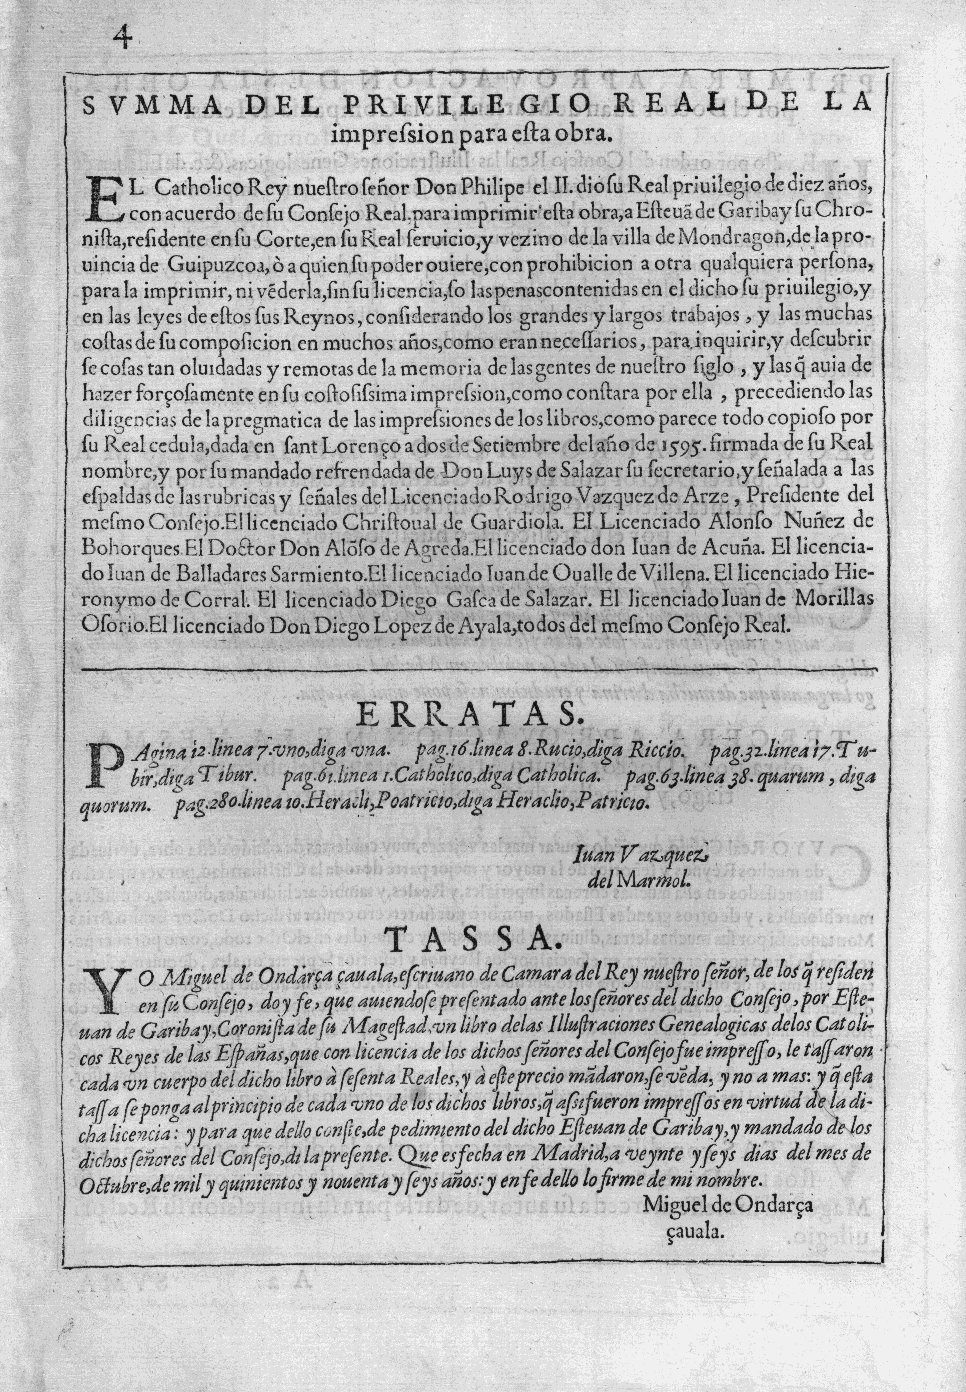 4
SVMMA DEL PRIVILEGIO REAL DE LA
impreſsion para eſta obra.
EL Catholico Rey nueſtro ſeñor Don Philipe el II. dio ſu Real priuilegio de diez años,
con acuerdo de ſu Conſejo Real, para imprimir eſta obra, a Eſteuã de Garibay ſu Chro-
niſta, reſidente en ſu Corte, en ſu Real ſeruicio, y vezino de la villa de Mondragon, de la pro-
uincia de Guipuzcoa, ò a quien ſu poder ouiere, con prohibicion a otra qualquiera perſona,
para la imprimir, ni vẽderla, ſin ſu licencia, ſo las penas contenidas en el dicho ſu priuilegio, y
en las leyes de eſtos ſus Reynos, conſiderando los grandes y largos trabajos, y las muchas
coſtas de ſu compoſicion en muchos años, como eran neceſſarios, para inquirir, y deſcubrir
ſe coſas tan oluidadas y remotas de la memoria de las gentes de nueſtro ſiglo, y las q̃ auia de
hazer forçoſamente en ſu coſtoſiſsima impreſsion, como conſtara por ella, precediendo las
diligencias de la pregmatica de las impreſsiones de los libros, como parece todo copioſo por
ſu Real cedula, dada en ſant Lorenço a dos de Setiembre del año de 1595. firmada de ſu Real
nombre, y por ſu mandado refrendada de Don Luys de Salazar ſu ſecretario, y ſeñalada a las
eſpaldas de las rubricas y ſeñales del Licenciado Rodrigo Vazquez de Arze, Preſidente del
meſmo Conſejo. El licenciado Chriſtoual de Guardiola. El Licenciado Alonſo Nuñez de
Bohorques. El Doctor Don Alõſo de Agreda. El licenciado don Iuan de Acuña. El licencia-
do Iuan de Balladares Sarmiento. El licenciado Iuan de Oualle de Villena. El licenciado Hie-
ronymo de Corral. El licenciado Diego Gaſca de Salazar. El licenciado Iuan de Morillas
Oſorio. El licenciado Don Diego Lopez de Ayala, todos del meſmo Conſejo Real.
ERRATAS.
PAgina 12. linea 7. vno, diga vna. pag. 16. linea 8. Rucio, diga Riccio. pag. 32. linea 17. Tu-
bir, diga Tibur. pag. 61. linea 1. Catholico, diga Catholica. pag. 63. linea 38. quarum, diga
quorum. pag. 280. linea 10. Heracli, Poatricio, diga Heraclio, Patricio.
Iuan Vazquez
del Marmol.
TASSA.
YO Miguel de Ondarça çauala, eſcriuano de Camara del Rey nueſtro ſeñor, de los q̃ reſiden
en ſu Conſejo, doy fe, que auiendoſe preſentado ante los ſeñores del dicho Conſejo, por Eſte-
uan de Garibay, Coroniſta de ſu Mageſtad, vn libro de las Illuſtraciones Genealogicas de los Catoli-
cos Reyes de las Eſpañas, que con licencia de los dichos ſeñores del Conſejo fue impreſſo, le taſſaron
cada vn cuerpo del dicho libro à ſeſenta Reales, y à eſte precio mãdaron, ſe vẽda, y no a mas: y q̃ eſta
taſſa ſe ponga al principio de cada vno de los dichos libros, q̃ aſsi fueron impreſſos en virtud de la di-
cha licencia: y para que dello conſte, de pedimiento del dicho Eſteuan de Garibay, y mandado de los
dichos ſeñores del Conſejo, di la preſente. Que es fecha en Madrid, a veynte y ſeys dias del mes de
Octubre, de mil y quinientos y nouenta y ſeys años: y en fe dello lo firme de mi nombre.
Miguel de Ondarça
çauala.